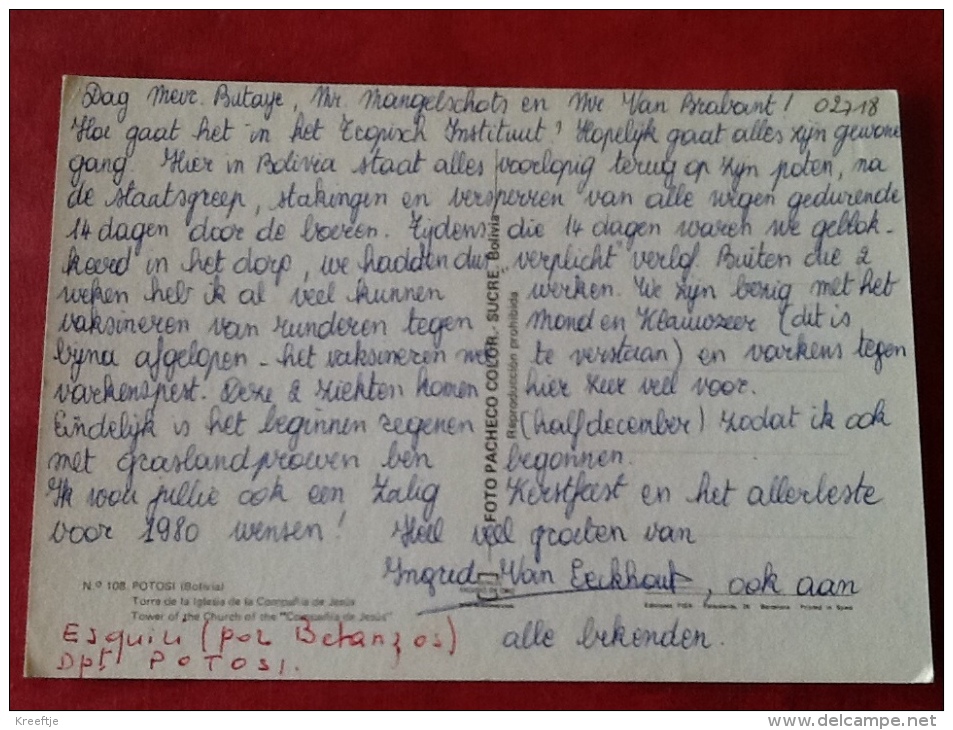 Dag Mevr. Butaye, Mr. Mangelschots en Mr Van Brabant! 02718
Hoe gaat het in het Tropisch Instituut? Hopelijk gaat alles zijn gewone
gang. Hier in Bolivia staat alles voorlopig terug op zijn poten, na
de staatsgreep, stakingen en versperren van alle wegen gedurende
14 dagen door de boeren. Tijdens die 14 dagen waren we geblok-
keerd in het dorp, we hadden dus "verplicht" verlof. Buiten die 2
weken heb ik al veel kunnen werken. We zijn bezig met het
vaksineren van runderen tegen Mond en Klauwzeer (dit is
bijna afgelopen - het vaksineren te verstaan) en varkens tegen
varkenspest. Deze 2 ziekten komen hier zeer veel voor.
Eindelijk is het beginnen regenen (half december) zodat ik ook
met graslandproeven ben begonnen.
Ik wou jullie ook een Zalig Kerstfeest en het allerbeste
voor 1980 wensen! Heel veel groeten van
Ingrid Van Eeckhout, ook aan
alle bekenden.
FOTO PACHECO COLOR.- SUCRE. Bolivia
Reproducción prohibida
N.º 108. POTOSI (Bolivia)
Torre de la Iglesia de la Compañia de Jesús
Tower of the Church of the "Compañia de Jesús"
Printed in Spain
Esquiri (por Betanzos)
Dpt. POTOSI.
Kreeftje
www.delcampe.net